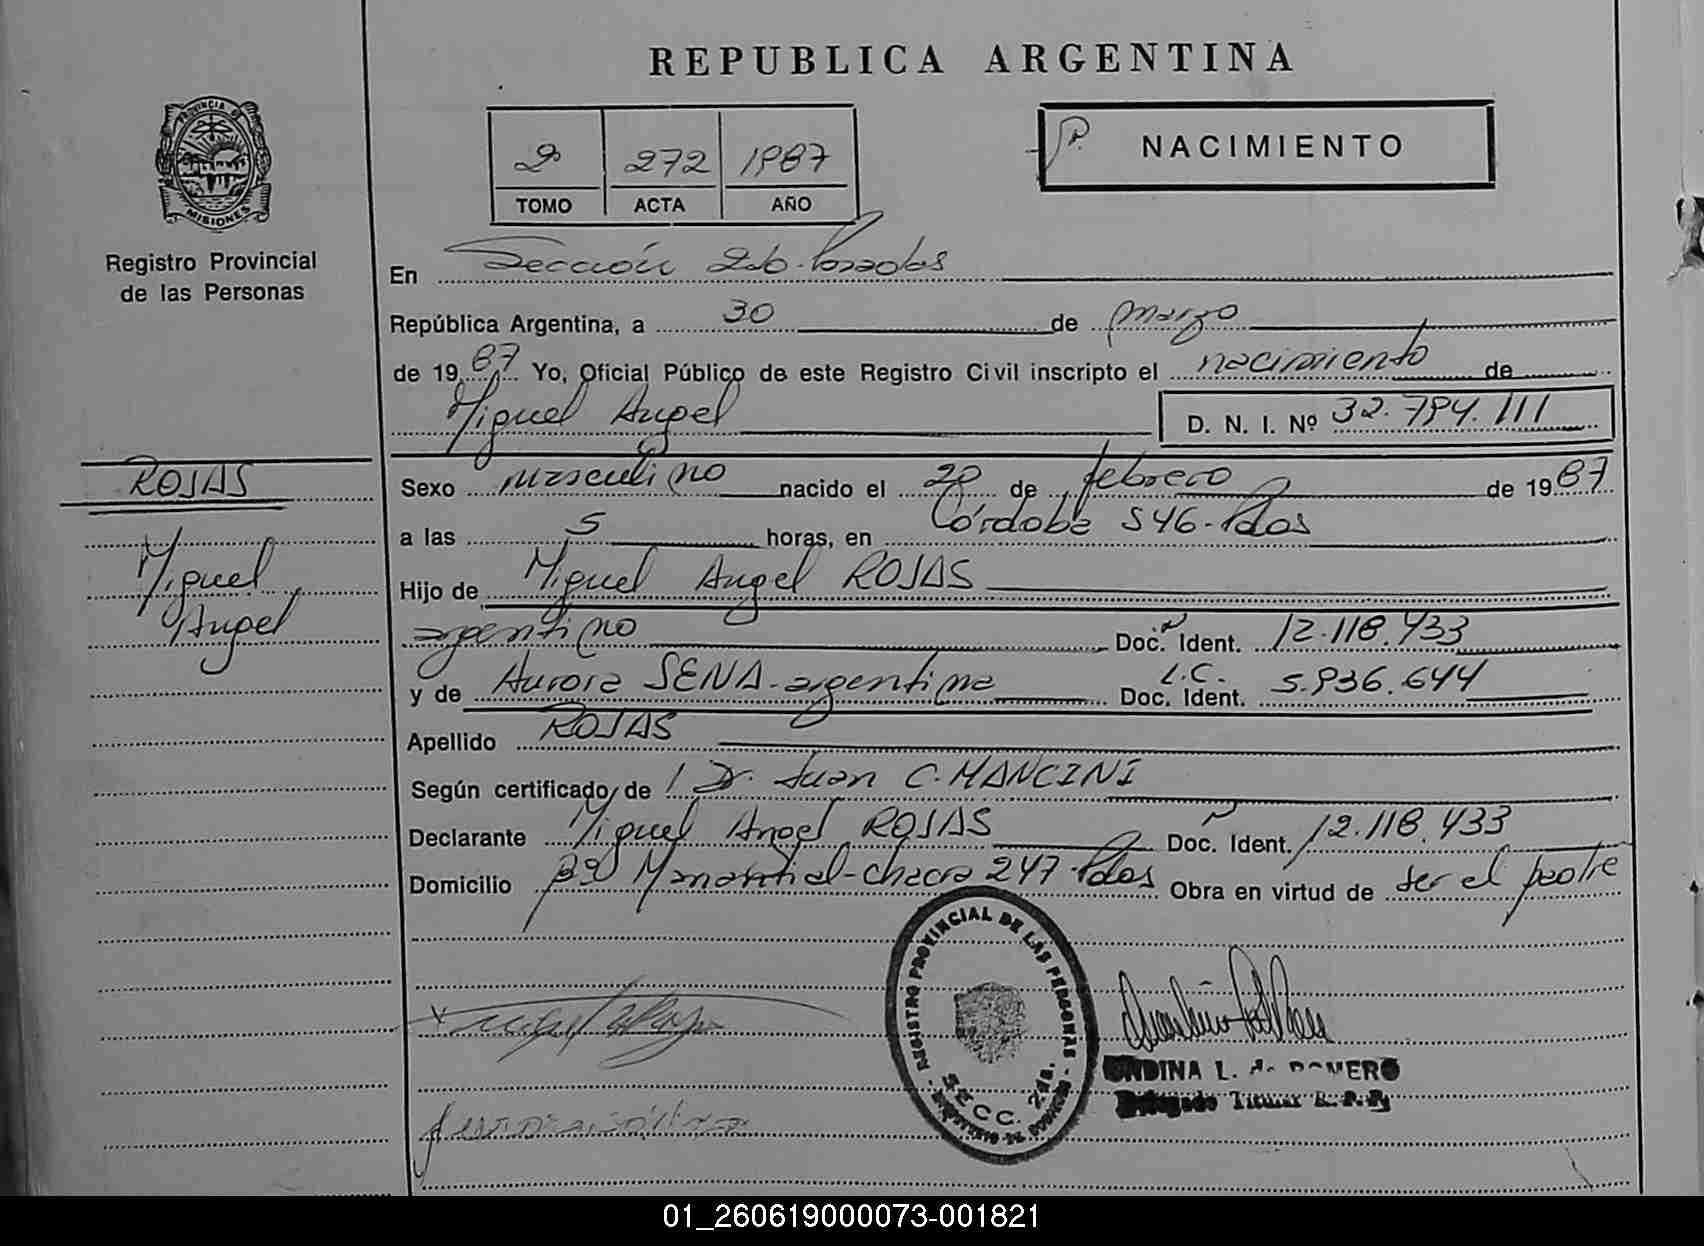 REPUBLICA ARGENTINA
PROVINCIA DE
MISIONES
Registro Provincial
de las Personas
2º 272 1987
TOMO ACTA AÑO
NACIMIENTO
En Sección 2da. Posadas
República Argentina, a 30 de marzo
de 1987 Yo, Oficial Público de este Registro Civil inscripto el nacimiento de
Miguel Angel D. N. I. Nº 32.794.111
ROJAS
Miguel
Angel
Sexo masculino nacido el 20 de febrero de 1987
a las 5 horas, en Córdoba 546-Pdas
Hijo de Miguel Angel ROJAS
argentino Doc. Ident. 12.118.433
y de Aurora SENA-argentina L.C. Doc. Ident. 5.936.644
Apellido ROJAS
Según certificado de l Dr. Juan C. MANCINI
Declarante Miguel Angel ROJAS Doc. Ident. 12.118.433
Domicilio Bº Manantial-chacra 247-Pdas Obra en virtud de ser el padre
REGISTRO PROVINCIAL DE LAS PERSONAS
SECC. 2da.
L. de ROMERO
Titular R. P. P.
01_260619000073-001821